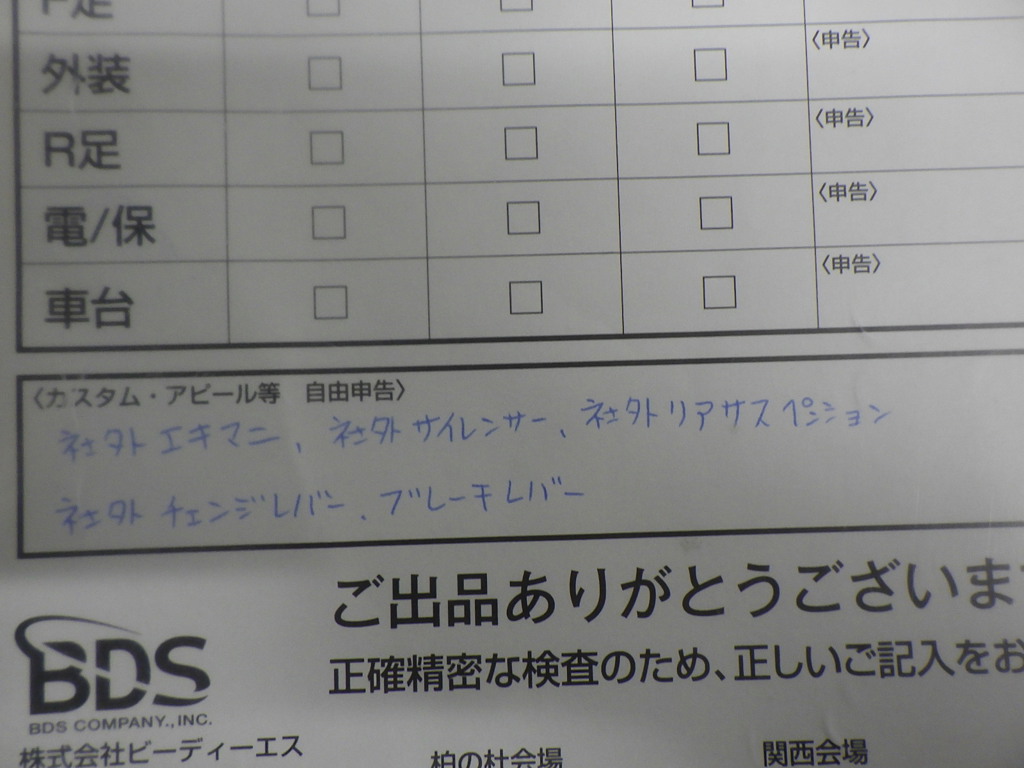 F足
外装 〈申告〉
R足 〈申告〉
電/保 〈申告〉
車台 〈申告〉
〈カスタム・アピール等 自由申告〉
社外エキマニ、社外サイレンサー、社外リアサスペンション
社外チェンジレバー、ブレーキレバー
ご出品ありがとうございま
正確精密な検査のため、正しいご記入をお
BDS
BDS COMPANY.,INC.
株式会社ビーディーエス
柏の杜会場
関西会場